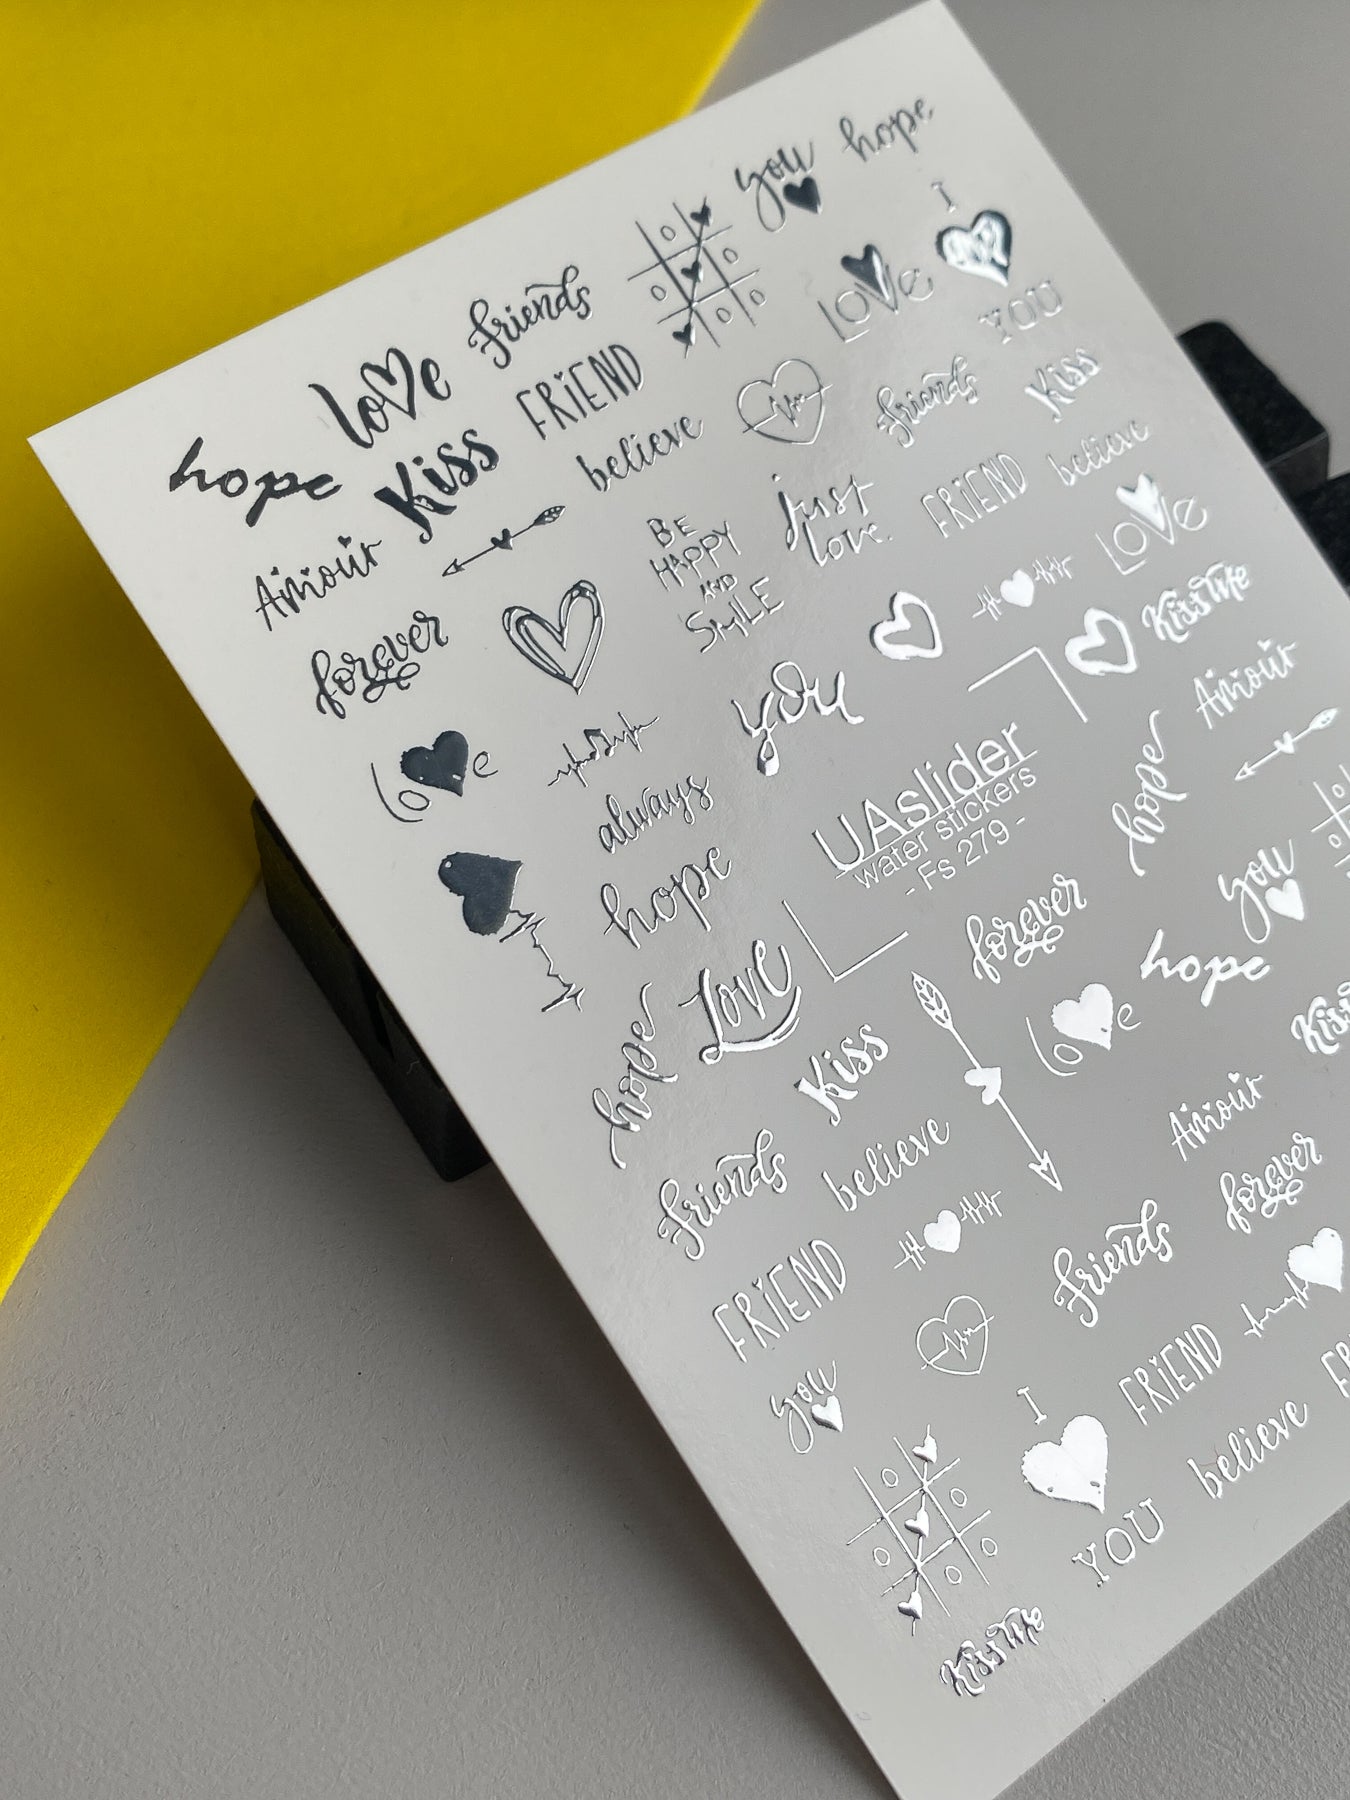 hope
love
friends
you
hope
Kiss
FRIEND
LOVE
I
YOU
Amour
believe
friends
Kiss
forever
BE
HAPPY
AND
SMILE
just
love.
FRIEND
believe
love
you
LOVE
Kiss Me
always
UAslider
water stickers
- Fs 279 -
Amour
hope
hope
hope
Love
forever
you
Kiss
love
hope
Kiss
friends
believe
Amour
forever
FRIEND
friends
you
I
YOU
FRIEND
believe
Kiss Me